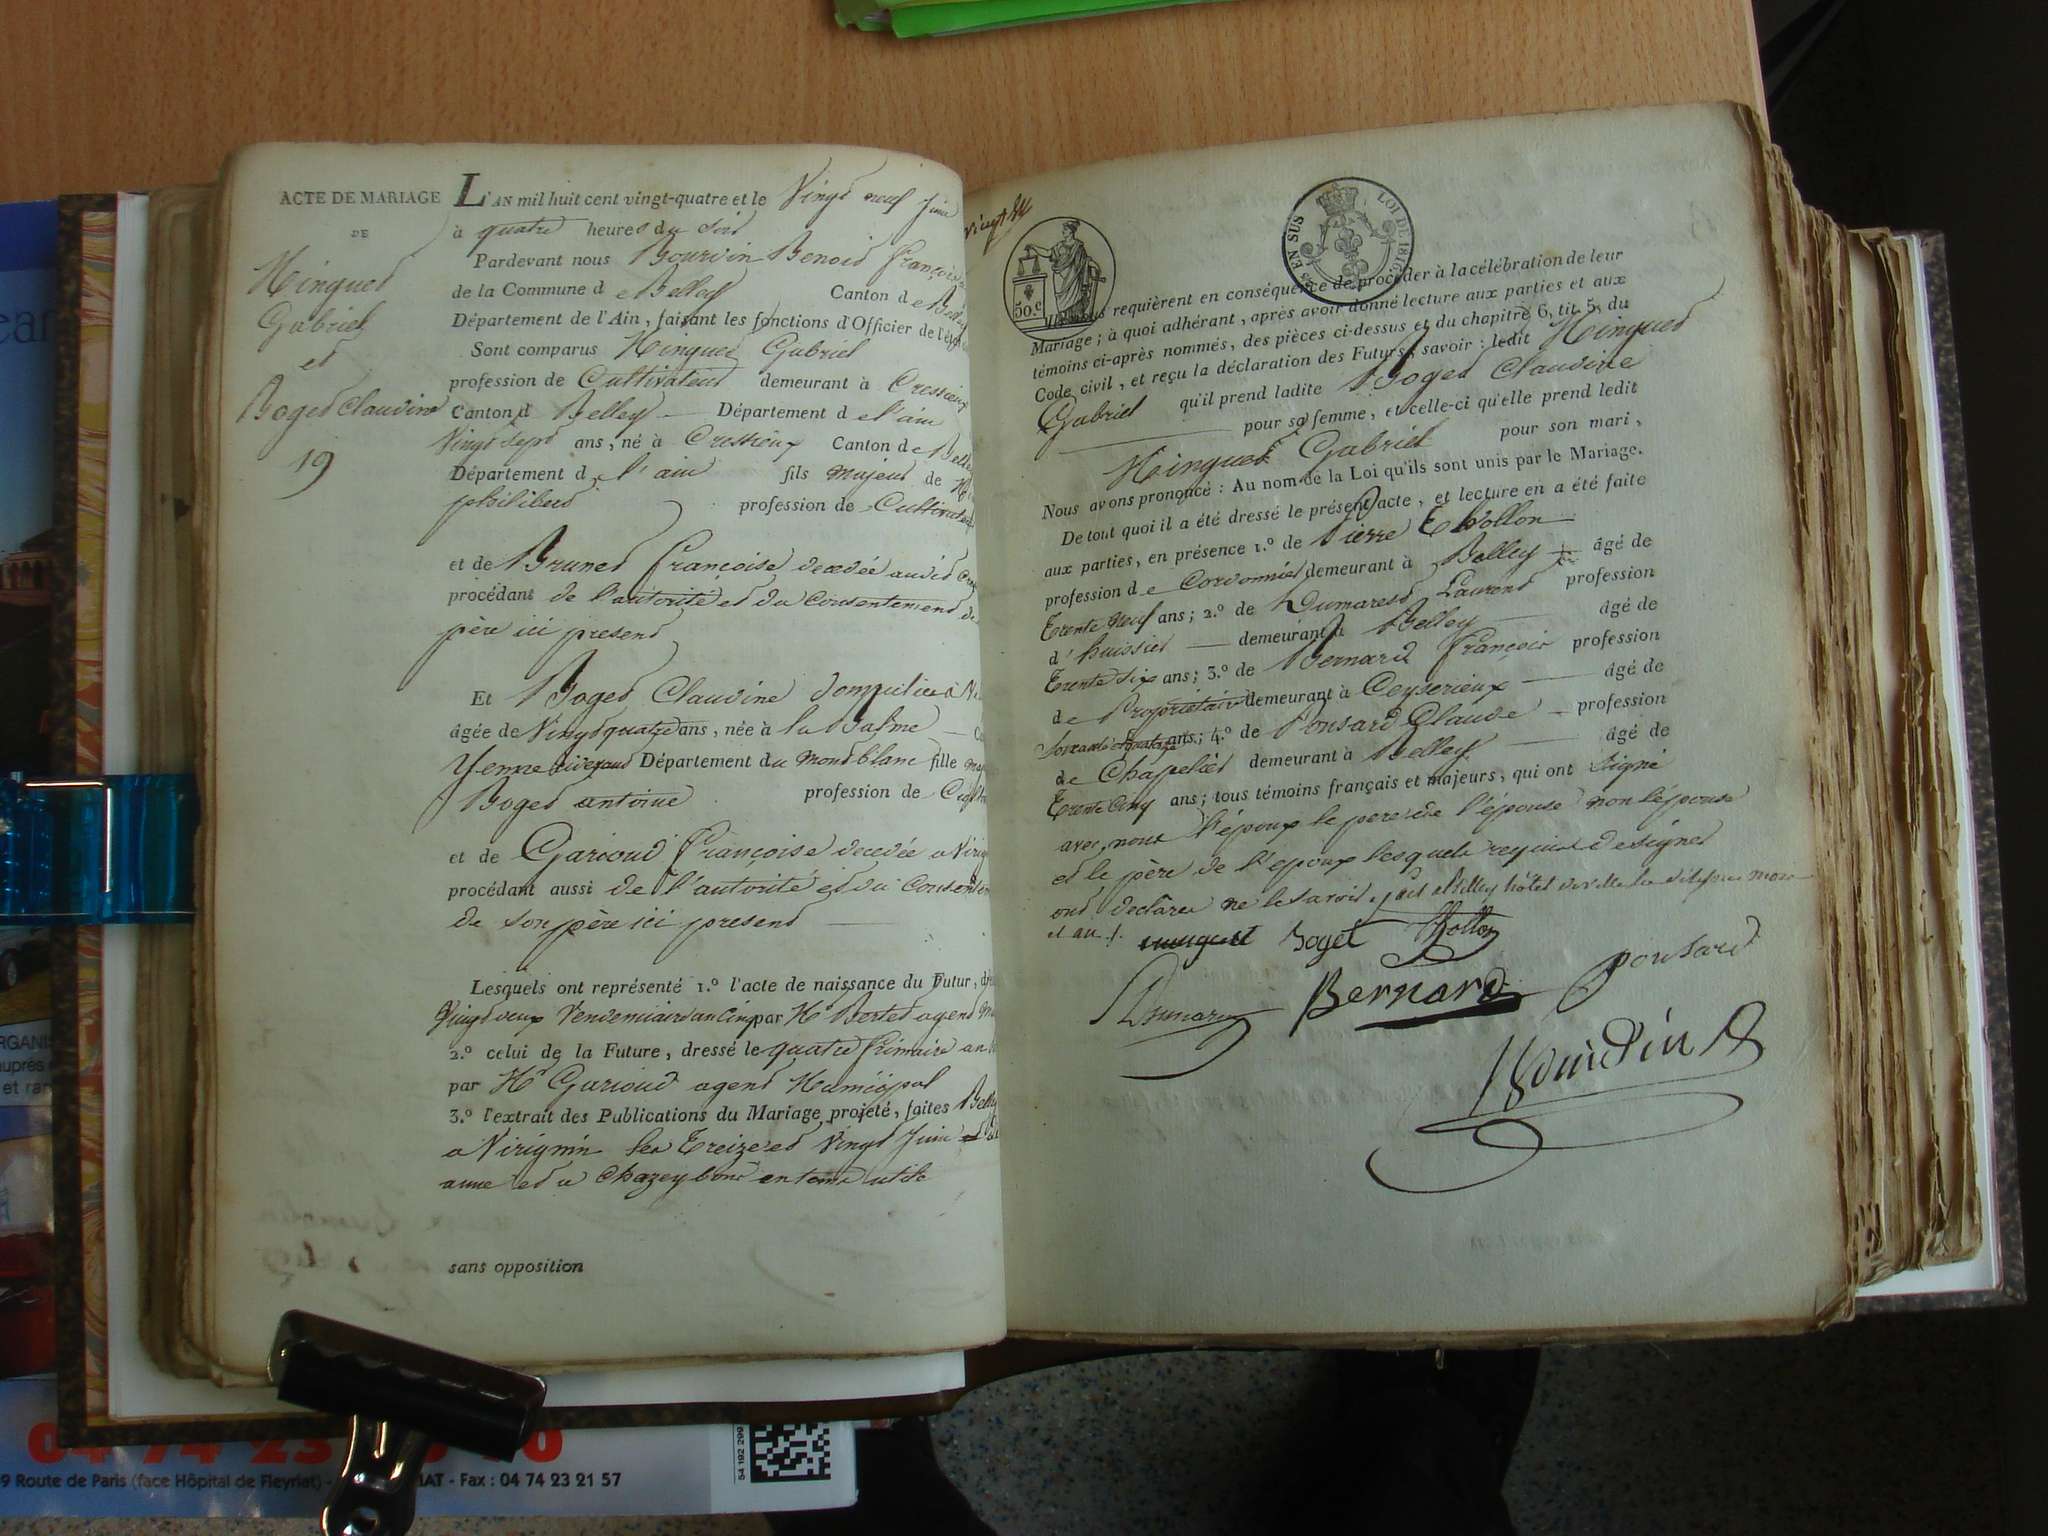 ACTE DE MARIAGE
DE
Minguet
Gabriel
et
Boget Claudine
19
L'AN mil huit cent vingt-quatre et le Vingt neuf Juin
à quatre heures du soir
Pardevant nous Benoit François
de la Commune de Belley Canton de Belley
Département de l'Ain, faisant les fonctions d'Officier de l'état
Sont comparus Minguet Gabriel
profession de Cultivateur demeurant à Cressieux
Canton d Belley Département de l'ain
Vingt sept ans, né à Cressieux Canton de Belley
Département d l'ain fils majeur de
philibert profession de Cultivateur
et de Brunet françoise decedée audit
procédant de l'autorité et du consentement de
père ici present
Et Boget Claudine domiciliée à
âgée de Vingt quatre ans, née à la Balme
Yenne Département du mont blanc fille
Boget antoine profession de
et de Garioud françoise decedée a
procédant aussi de l'autorité et du
de son père ici present
Lesquels ont représenté 1.º l'acte de naissance du Futur,
Vingt deux Vendemiaire an Cinq par Mr Bertet agent
2.º celui de la Future, dressé le quatre frimaire an
par Mr Garioud agent Municipal
3.º l'extrait des Publications du Mariage projeté, faites
a Virignin les Treize et Vingt Juin
anne et a Chazey bons en tems utile
sans opposition
50.C
EN SUS
LOI DE 1816
requièrent en conséquence de procéder à la célébration de leur
Mariage; à quoi adhérant, après avoir donné lecture aux parties et aux
témoins ci-après nommés, des pièces ci-dessus et du chapitre 6, tit. 5, du
Code civil, et reçu la déclaration des Futurs, savoir: ledit Minguet
Gabriel qu'il prend ladite Boget Claudine
pour sa femme, et celle-ci qu'elle prend ledit
Minguet Gabriel pour son mari,
Nous avons prononcé: Au nom de la Loi qu'ils sont unis par le Mariage.
De tout quoi il a été dressé le présent acte, et lecture en a été faite
aux parties, en présence 1.º de Pierre Thollon
profession de Cordonnier demeurant à Belley âgé de
Trente neuf ans; 2.º de Dumarest Laurent profession
d'huissier demeurant à Belley âgé de
Trente Six ans; 3.º de Bernard françois profession
de Propriétaire demeurant à Ceyserieux âgé de
ans; 4.º de Ponsard Claude profession
de Chapelier demeurant à Belley âgé de
Trente Cinq ans; tous témoins français et majeurs, qui ont signé
avec nous l'époux le pere de l'épouse non l'épouse
et le père de l'epoux lesquels requis de signer
ont declaré ne le savoir, fait à Belley hôtel de ville les dits jour mois
et an
Boget Thollon
Bernard ponsard